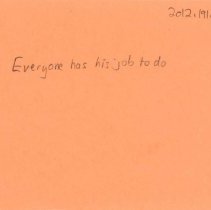 2012.191.
Everyone has his job to do